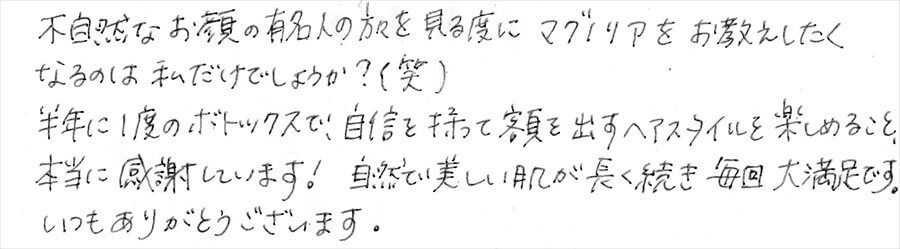 不自然なお顔の有名人の方々を見る度に マグノリアをお教えしたく
なるのは 私だけでしょうか？(笑)
半年に1度のボトックスで、自信を持って客額を出すヘアスタイルを楽しめること、
本当に感謝しています！ 自然で美しい肌が長く続き毎回大満足です。
いつもありがとうございます。